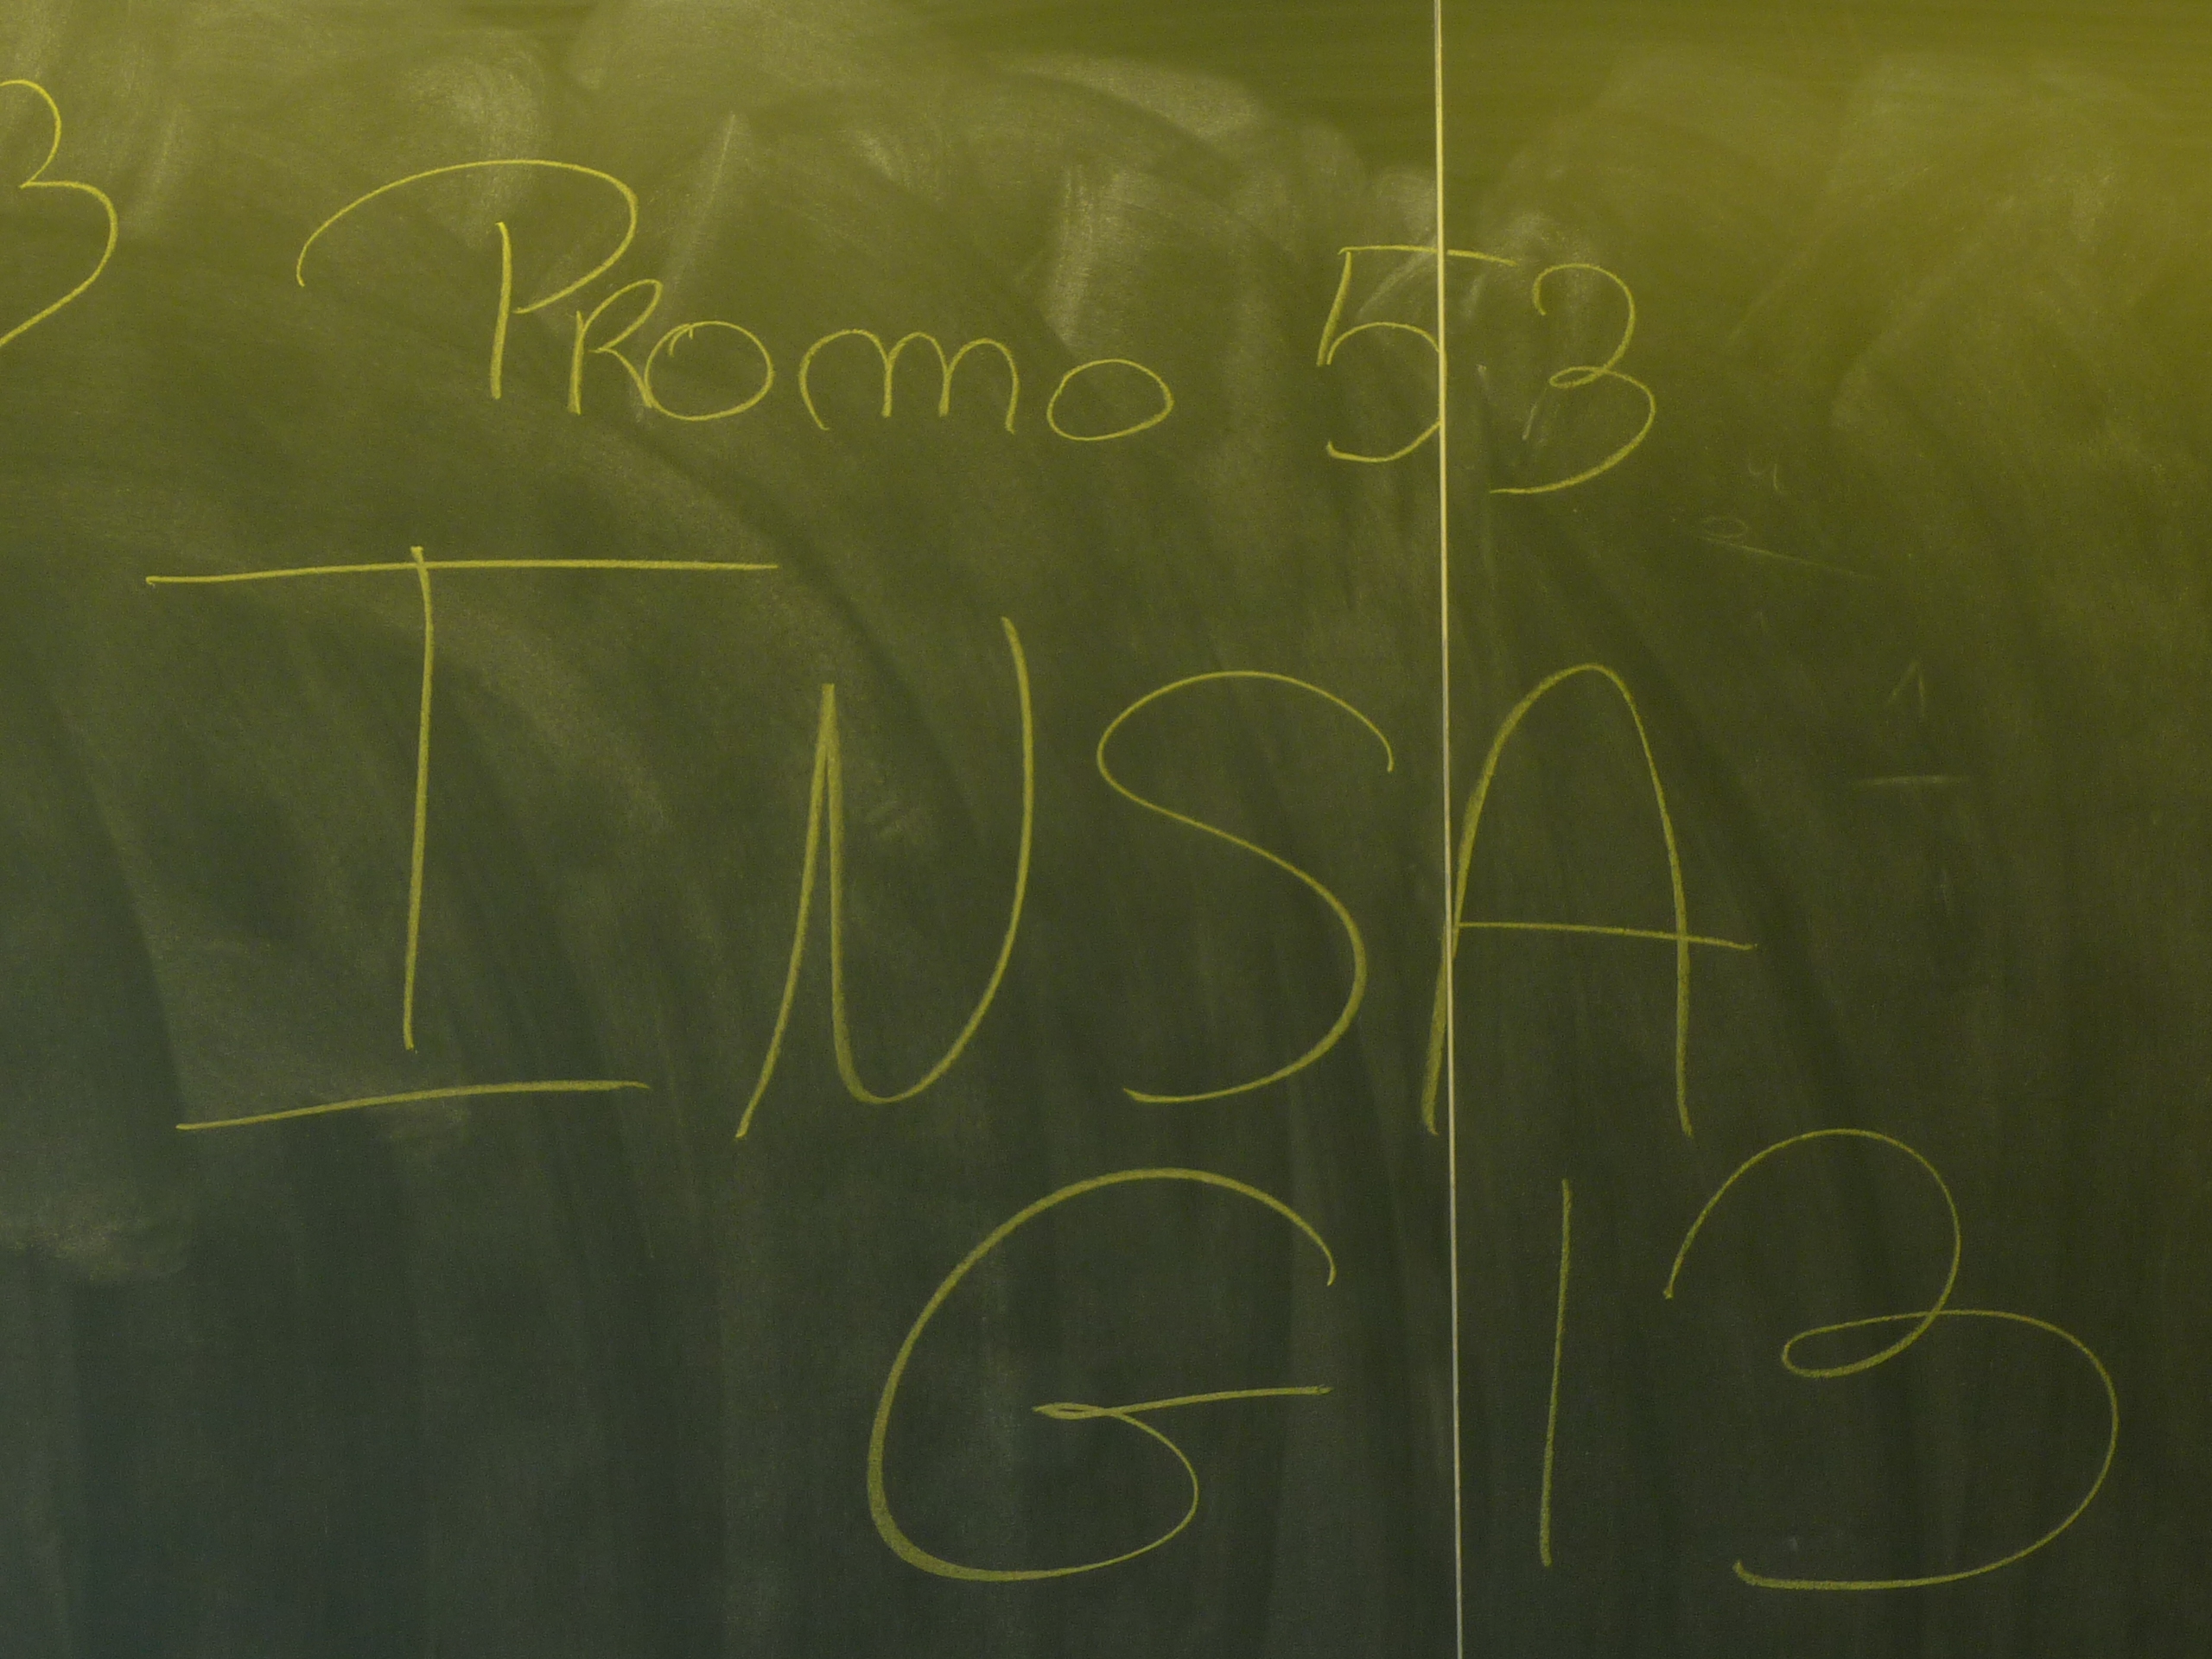 3 Promo 53
INSA
G13